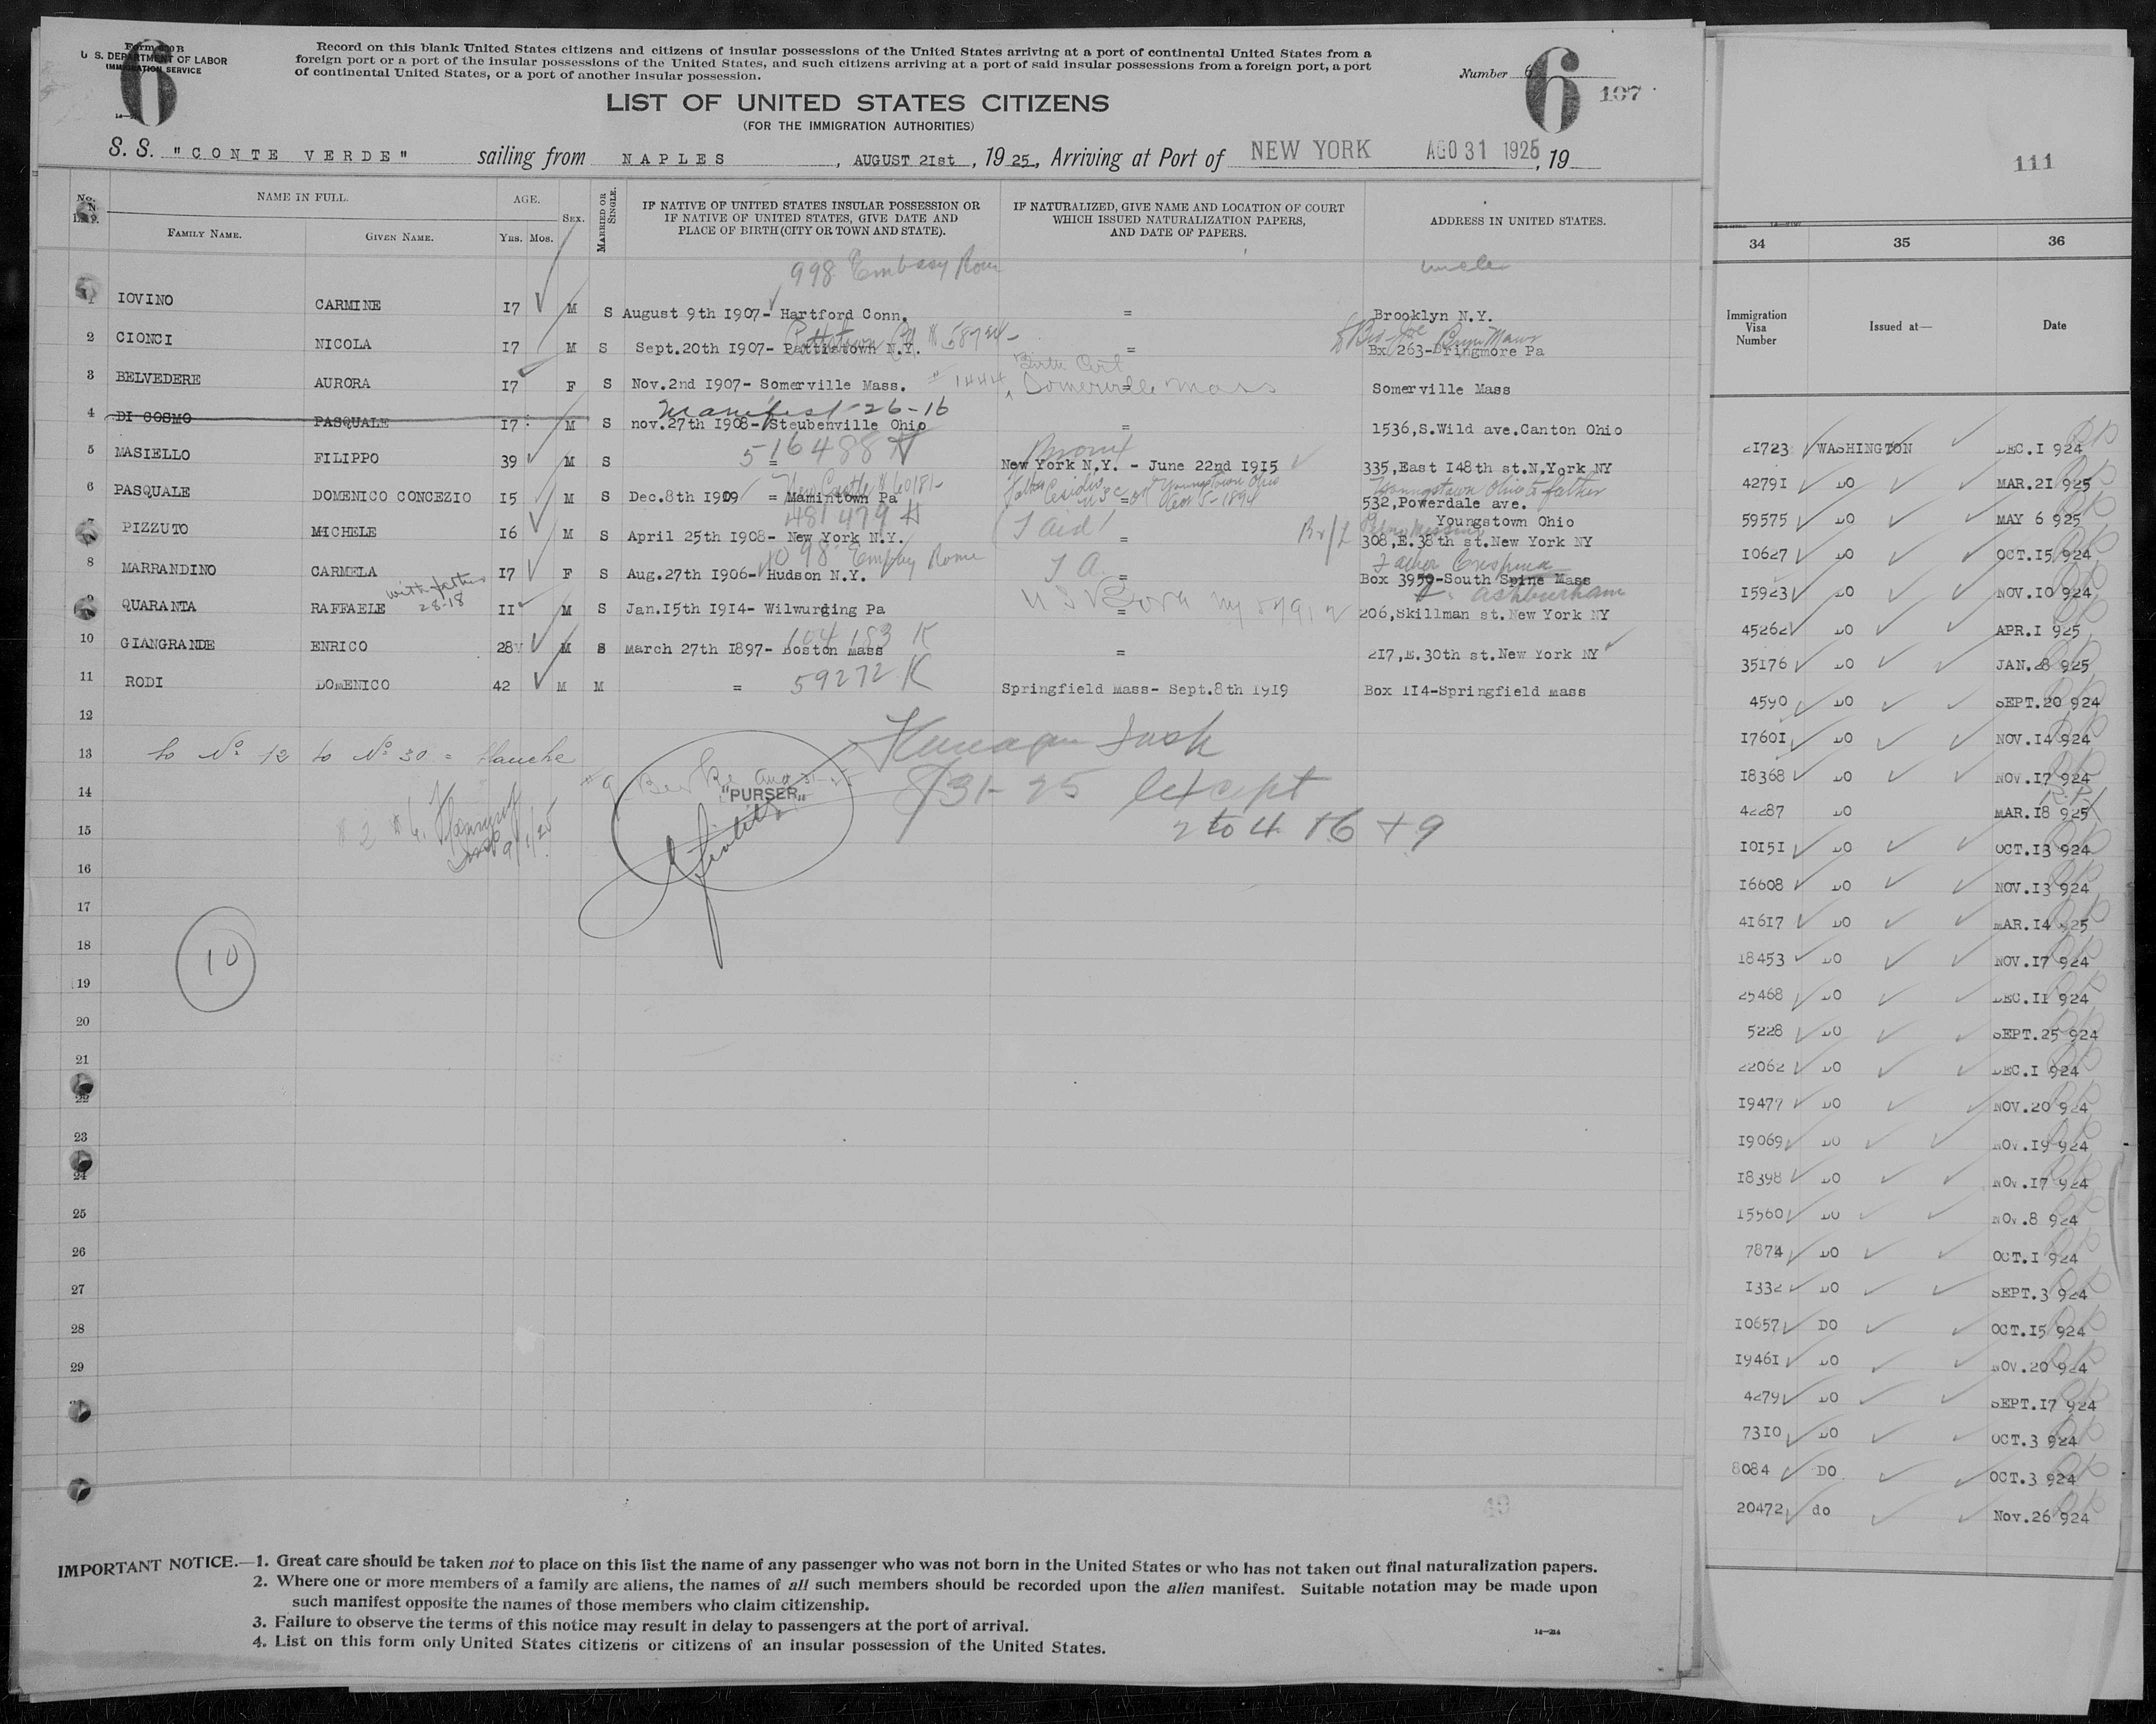 Form 630 B
U. S. DEPARTMENT OF LABOR
IMMIGRATION SERVICE
6
Record on this blank United States citizens and citizens of insular possessions of the United States arriving at a port of continental United States from a
foreign port or a port of the insular possessions of the United States, and such citizens arriving at a port of said insular possessions from a foreign port, a port
of continental United States, or a port of another insular possession.
Number 6
6
107
LIST OF UNITED STATES CITIZENS
(FOR THE IMMIGRATION AUTHORITIES)
S. S. "CONTE VERDE" sailing from NAPLES, AUGUST 21st, 1925, Arriving at Port of NEW YORK AGO 31 1925, 19
No. on List. NAME IN FULL. AGE. SEX. MARRIED OR SINGLE. IF NATIVE OF UNITED STATES INSULAR POSSESSION OR IF NATIVE OF UNITED STATES, GIVE DATE AND PLACE OF BIRTH (CITY OR TOWN AND STATE). IF NATURALIZED, GIVE NAME AND LOCATION OF COURT WHICH ISSUED NATURALIZATION PAPERS, AND DATE OF PAPERS. ADDRESS IN UNITED STATES.
FAMILY NAME. GIVEN NAME. Yrs. Mos.
998 Embassy Rome uncle
1 IOVINO CARMINE 17 M S August 9th 1907- Hartford Conn. = Brooklyn N.Y.
2 CIONCI NICOLA 17 M S Sept.20th 1907- Pattistown N.Y. = Bx 263-Bringmore Pa
Pottstown Bryn Mawr
Birth Cert
3 BELVEDERE AURORA 17 F S Nov.2nd 1907- Somerville Mass. # 1444 Somerville Mass = Somerville Mass
Manifest-26-16
4 DI COSMO PASQUALE 17 M S nov.27th 1908- Steubenville Ohio = 1536,S.Wild ave.Canton Ohio
516488 Bronx
5 MASIELLO FILIPPO 39 M S = New York N.Y. - June 22nd 1915 335,East 148th st.N.York NY
New Castle # 60181- Youngstown Ohio Youngstown Ohio to father
6 PASQUALE DOMENICO CONCEZIO 15 M S Dec.8th 1909 = Mamintown Pa = 532,Powerdale ave.
Youngstown Ohio
481479
7 PIZZUTO MICHELE 16 M S April 25th 1908- New York N.Y. = 308,E.38th st.New York NY
98 Rome
8 MARRANDINO CARMELA 17 F S Aug.27th 1906- Hudson N.Y. = Box 3959-South Spine Mass
with father
28-18
Ashburnham
9 QUARANTA RAFFAELE 11 M S Jan.15th 1914- Wilwurding Pa = 206,Skillman st.New York NY
104183 K
10 GIANGRANDE ENRICO 28 M S March 27th 1897- Boston Mass = 217,E.30th st.New York NY
11 RODI DOMENICO 42 M M = 59272 K Springfield Mass- Sept.8th 1919 Box 114-Springfield mass
12
13 to No 12 to No 30 = blanche
14
"PURSER"
8/31-25 except
2 to 4 + 6 + 9
15
16
17
18
10
19
20
21
22
23
24
25
26
27
28
29
49
IMPORTANT NOTICE.—1. Great care should be taken not to place on this list the name of any passenger who was not born in the United States or who has not taken out final naturalization papers.
2. Where one or more members of a family are aliens, the names of all such members should be recorded upon the alien manifest. Suitable notation may be made upon
such manifest opposite the names of those members who claim citizenship.
3. Failure to observe the terms of this notice may result in delay to passengers at the port of arrival.
4. List on this form only United States citizens or citizens of an insular possession of the United States.
14-214
111
34 35 36
Immigration Visa Number Issued at— Date
21723 WASHINGTON DEC.1 924
42791 DO MAR.21 925
59575 DO MAY 6 925
10627 DO OCT.15 924
15923 DO NOV.10 924
45262 DO APR.1 925
35176 DO JAN.28 925
4590 DO SEPT.20 924
17601 DO NOV.14 924
18368 DO NOV.17 924
42287 DO MAR.18 925
10151 DO OCT.13 924
16608 DO NOV.13 924
41617 DO MAR.14 925
18453 DO NOV.17 924
25468 DO DEC.11 924
5228 DO SEPT.25 924
22062 DO DEC.1 924
19477 DO NOV.20 924
19069 DO NOV.19 924
18398 DO NOV.17 924
15560 DO NOV.8 924
7874 DO OCT.1 924
1332 DO SEPT.3 924
10657 DO OCT.15 924
19461 DO NOV.20 924
4279 DO SEPT.17 924
7310 DO OCT.3 924
8084 DO OCT.3 924
20472 do Nov.26 924